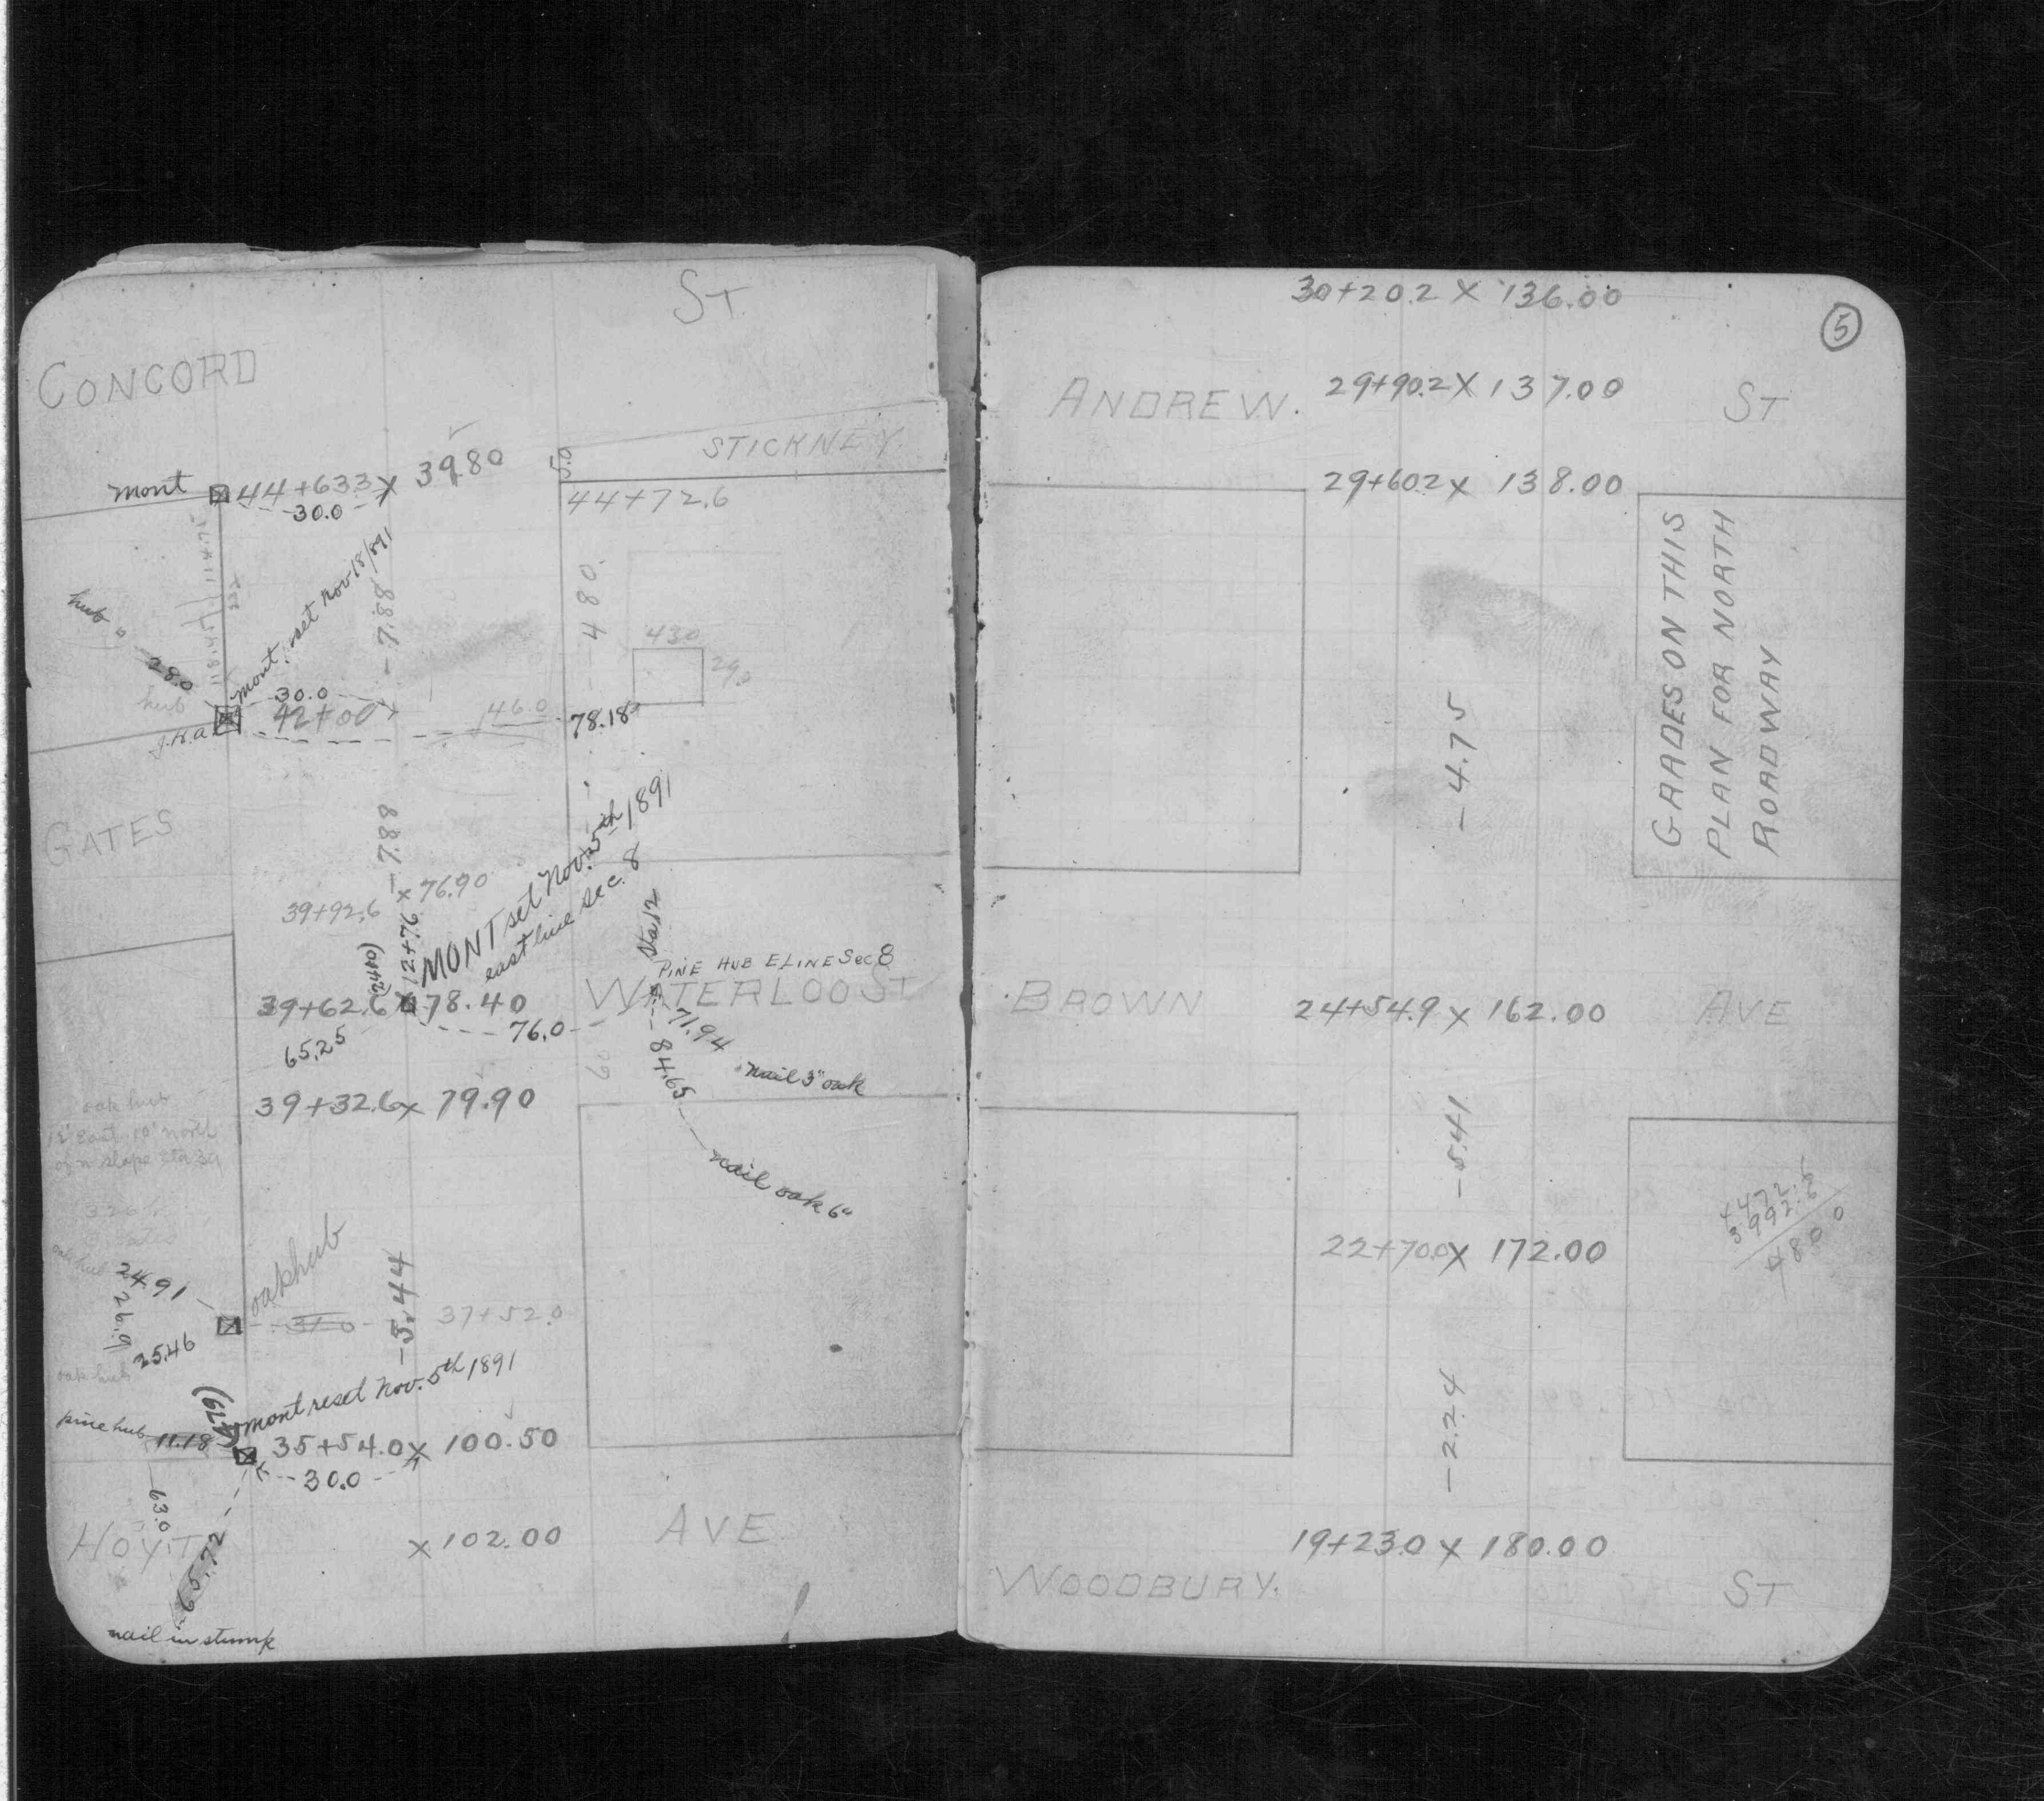 ST.
CONCORD
STICKNEY.
5.0
mont 44+63.3 x 39.80
30.0
44+72.6
mont. set Nov 18/891
-7.88
480.
hub
28.0
430
29.0
hub
30.0
42+00
146.0
78.18
J.H.a.
GATES
-7.88
39+92.6 x 76.90
MONT set Nov. 5th 1891
east line Sec. 8
12+7.6
(2440)
Sta 12
PINE HUB E LINE Sec 8
39+62.6 x 78.40
WATERLOO ST
76.0
65.25
71.94
84.65
nail 3" oak
39+32.6 x 79.90
oak hub
12' East 10' north
of n slope sta 39
nail oak 6"
oak hub
24.91
oak hub
26.9
31.0
37+52.0
-5.44
25.46
oak hub
mont reset Nov. 5th 1891
pine hub 11.18
35+54.0 x 100.50
30.0
63.0
HOYT
x 102.00
AVE
65.72
nail in stump
5
30+20.2 x 136.00
ANDREW. 29+90.2 x 137.00 ST
29+60.2 x 138.00
GRADES ON THIS
PLAN FOR NORTH
ROADWAY
-4.75
BROWN 24+54.9 x 162.00 AVE
-5.41
4472.6
3992.6
480 0
22+70.0 x 172.00
-2.24
19+23.0 x 180.00
WOODBURY. ST